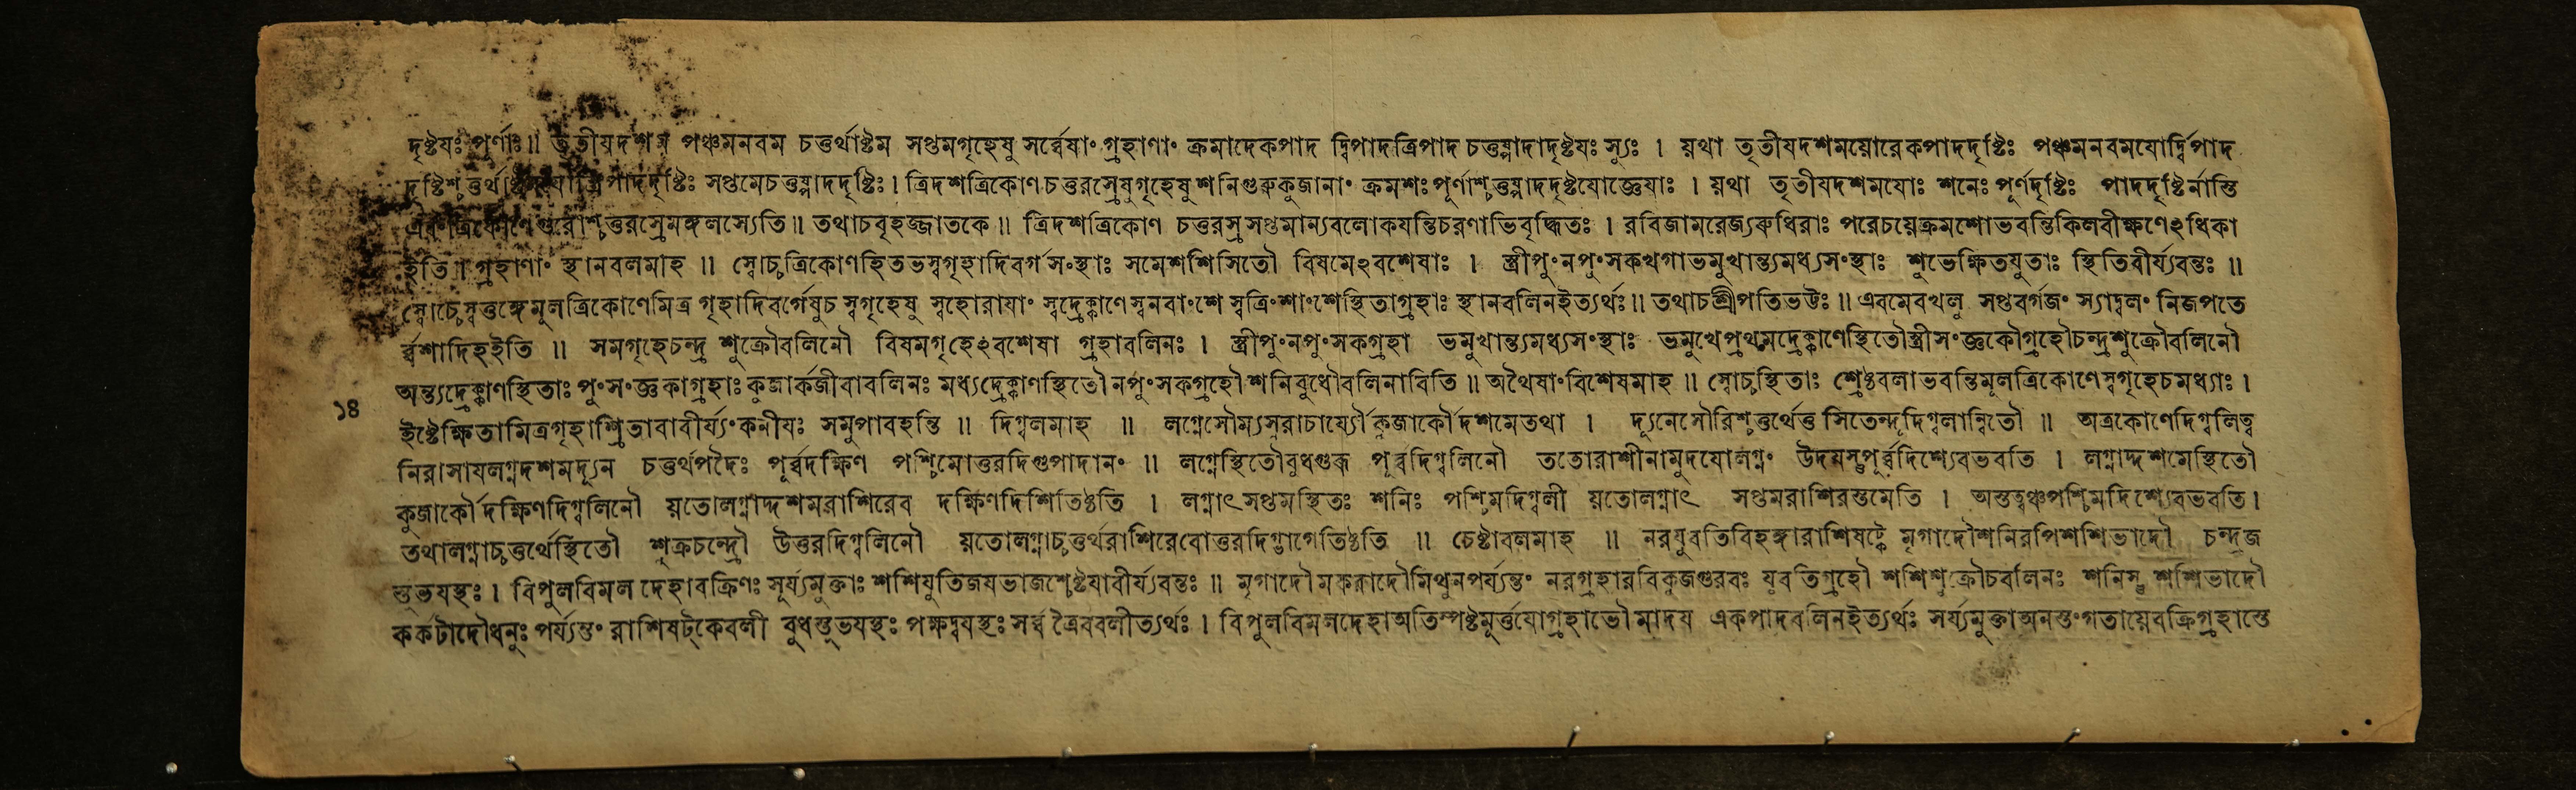 দৃষ্টযঃ পূর্ণাঃ॥ তৃতীযদশম পঞ্চমনবম চতুর্থাষ্টম সপ্তমগৃহেষু সর্ব্বেষাং গ্রহাণাং ক্রমাদেকপাদ দ্বিপাদত্রিপাদ চতুষ্পাদাদৃষ্টযঃ স্যুঃ । য়থা তৃতীযদশময়োরেকপাদদৃষ্টিঃ পঞ্চমনবমযোর্দ্বিপাদ
দৃষ্টিশ্চতুর্থাষ্টমযোস্ত্রিপাদদৃষ্টিঃ সপ্তমেচতুষ্পাদদৃষ্টিঃ। ত্রিদশত্রিকোণ চতুরস্রেষুগৃহেষু শনিগুরুকুজানাং ক্রমশঃ পূর্ণাশ্চতুষ্পাদদৃষ্টযোজ্ঞেযাঃ । য়থা তৃতীযদশমযোঃ শনেঃ পূর্ণদৃষ্টিঃ পাদদৃষ্টির্নাস্তি
ত্রিকোণেগুরোশ্চতুরস্রেমঙ্গলস্যেতি॥ তথাচবৃহজ্জাতকে॥ ত্রিদশত্রিকোণ চতুরস্রসপ্তমান্যবলোকযন্তিচরণাভিবৃদ্ধিতঃ । রবিজামরেজ্যরুধিরাঃ পরেচয়েক্রমশোভবন্তিকিলবীক্ষণেঽধিকা
ইতি॥ গ্রহাণাং স্থানবলমাহ ॥ স্বোচ্চত্রিকোণহিতভস্বগৃহাদিবর্গ সংস্থাঃ সমেশশিসিতৌ বিষমেঽবশেষাঃ । স্ত্রীপুংনপুংসকখগাভমুখান্ত্যমধ্যসংস্থাঃ শুভেক্ষিতযুতাঃ স্থিতিবীর্য্যবন্তঃ ॥
স্বোচ্চেস্বতুঙ্গেমূলত্রিকোণেমিত্র গৃহাদিবর্গেষুচ স্বগৃহেষু স্বহোরাযাং স্বদ্রেক্কাণেস্বনবাংশে স্বত্রিংশাংশেস্থিতাগ্রহাঃ স্থানবলিনইত্যর্থঃ॥ তথাচশ্রীপতিভট্টঃ॥ এবমেবখলু সপ্তবর্গজং স্যাদ্বলং নিজপতে
র্ব্বশাদিহইতি ॥ সমগৃহেচন্দ্র শুক্রৌবলিনৌ বিষমগৃহেঽবশেষা গ্রহাবলিনঃ । স্ত্রীপুংনপুংসকগ্রহা ভমুখান্ত্যমধ্যসংস্থাঃ ভমুখেপ্রথমদ্রেক্কাণেস্থিতৌস্ত্রীসংজ্ঞকৌগ্রহৌচন্দ্রশুক্রৌবলিনৌ
অন্ত্যদ্রেক্কাণস্থিতাঃ পুংসংজ্ঞকাগ্রহাঃ কুজার্কজীবাবলিনঃ মধ্যদ্রেক্কাণস্থিতৌ নপুংসকগ্রহৌ শনিবুধৌবলিনাবিতি॥ অথৈষাং বিশেষমাহ॥ স্বোচ্চস্থিতাঃ শ্রেষ্ঠবলাভবন্তিমূলত্রিকোণেস্বগৃহেচমধ্যাঃ।
১৪
ইষ্টেক্ষিতামিত্রগৃহাশ্রিতাবাবীর্য্যং কনীযঃ সমুপাবহন্তি ॥ দিগ্বলমাহ ॥ লগ্নেসৌম্যসুরাচার্য্যৌ কুজার্কৌ দশমেতথা । দ্যূনেসৌরিশ্চতুর্থেতু সিতেন্দূদিগ্বলান্বিতৌ ॥ অত্রকোণেদিগ্বলিত্ব
নিরাসাযলগ্নদশমদ্যূন চতুর্থপদৈঃ পূর্ব্বদক্ষিণ পশ্চিমোত্তরদিগুপাদানং ॥ লগ্নেস্থিতৌবুধগুরূ পূর্ব্বদিগ্বলিনৌ ততোরাশীনামুদযোলগ্নং উদযস্তুপূর্ব্বদিশ্যেবভবতি । লগ্নাদ্দশমেস্থিতৌ
কুজার্কৌ দক্ষিণদিগ্বলিনৌ য়তোলগ্নাদ্দশমরাশিরেব দক্ষিণদিশিতিষ্ঠতি । লগ্নাৎসপ্তমস্থিতঃ শনিঃ পশ্চিমদিগ্বলী য়তোলগ্নাৎ সপ্তমরাশিরস্তমেতি । অস্তত্বঞ্চপশ্চিমদিশ্যেবভবতি।
তথালগ্নাচ্চতুর্থেস্থিতৌ শুক্রচন্দ্রৌ উত্তরদিগ্বলিনৌ য়তোলগ্নাচ্চতুর্থরাশিরেবোত্তরদিগ্ভাগেতিষ্ঠতি ॥ চেষ্টাবলমাহ ॥ নরযুবতিবিহঙ্গারাশিষট্কে মৃগাদৌশনিরপিশশিভাদৌ চন্দ্রজ
স্তূভযস্থঃ। বিপুলবিমল দেহাবক্রিণঃ সূর্য্যমুক্তাঃ শশিযুতিজযভাজশ্চেষ্টযাবীর্য্যবন্তঃ ॥ মৃগাদৌ মকরাদৌমিথুনপর্য্যন্তং নরগ্রহারবিকুজগুরবঃ যুবতিগ্রহৌ শশিশুক্রৌচবলিনঃ শনিস্তু শশিভাদৌ
কর্কটাদৌধনুঃ পর্য্যন্তং রাশিষট্কেবলী বুধস্তূভযস্থঃ পক্ষদ্বযস্থঃ সর্ব্বত্রৈববলীত্যর্থঃ । বিপুলবিমলদেহাঅতিস্পষ্টমূর্ত্তযোগ্রহাভৌমাদয একপাদবলিনইত্যর্থঃ সূর্য্যমুক্তাঅনস্তংগতায়েবক্রিগ্রহাস্তে